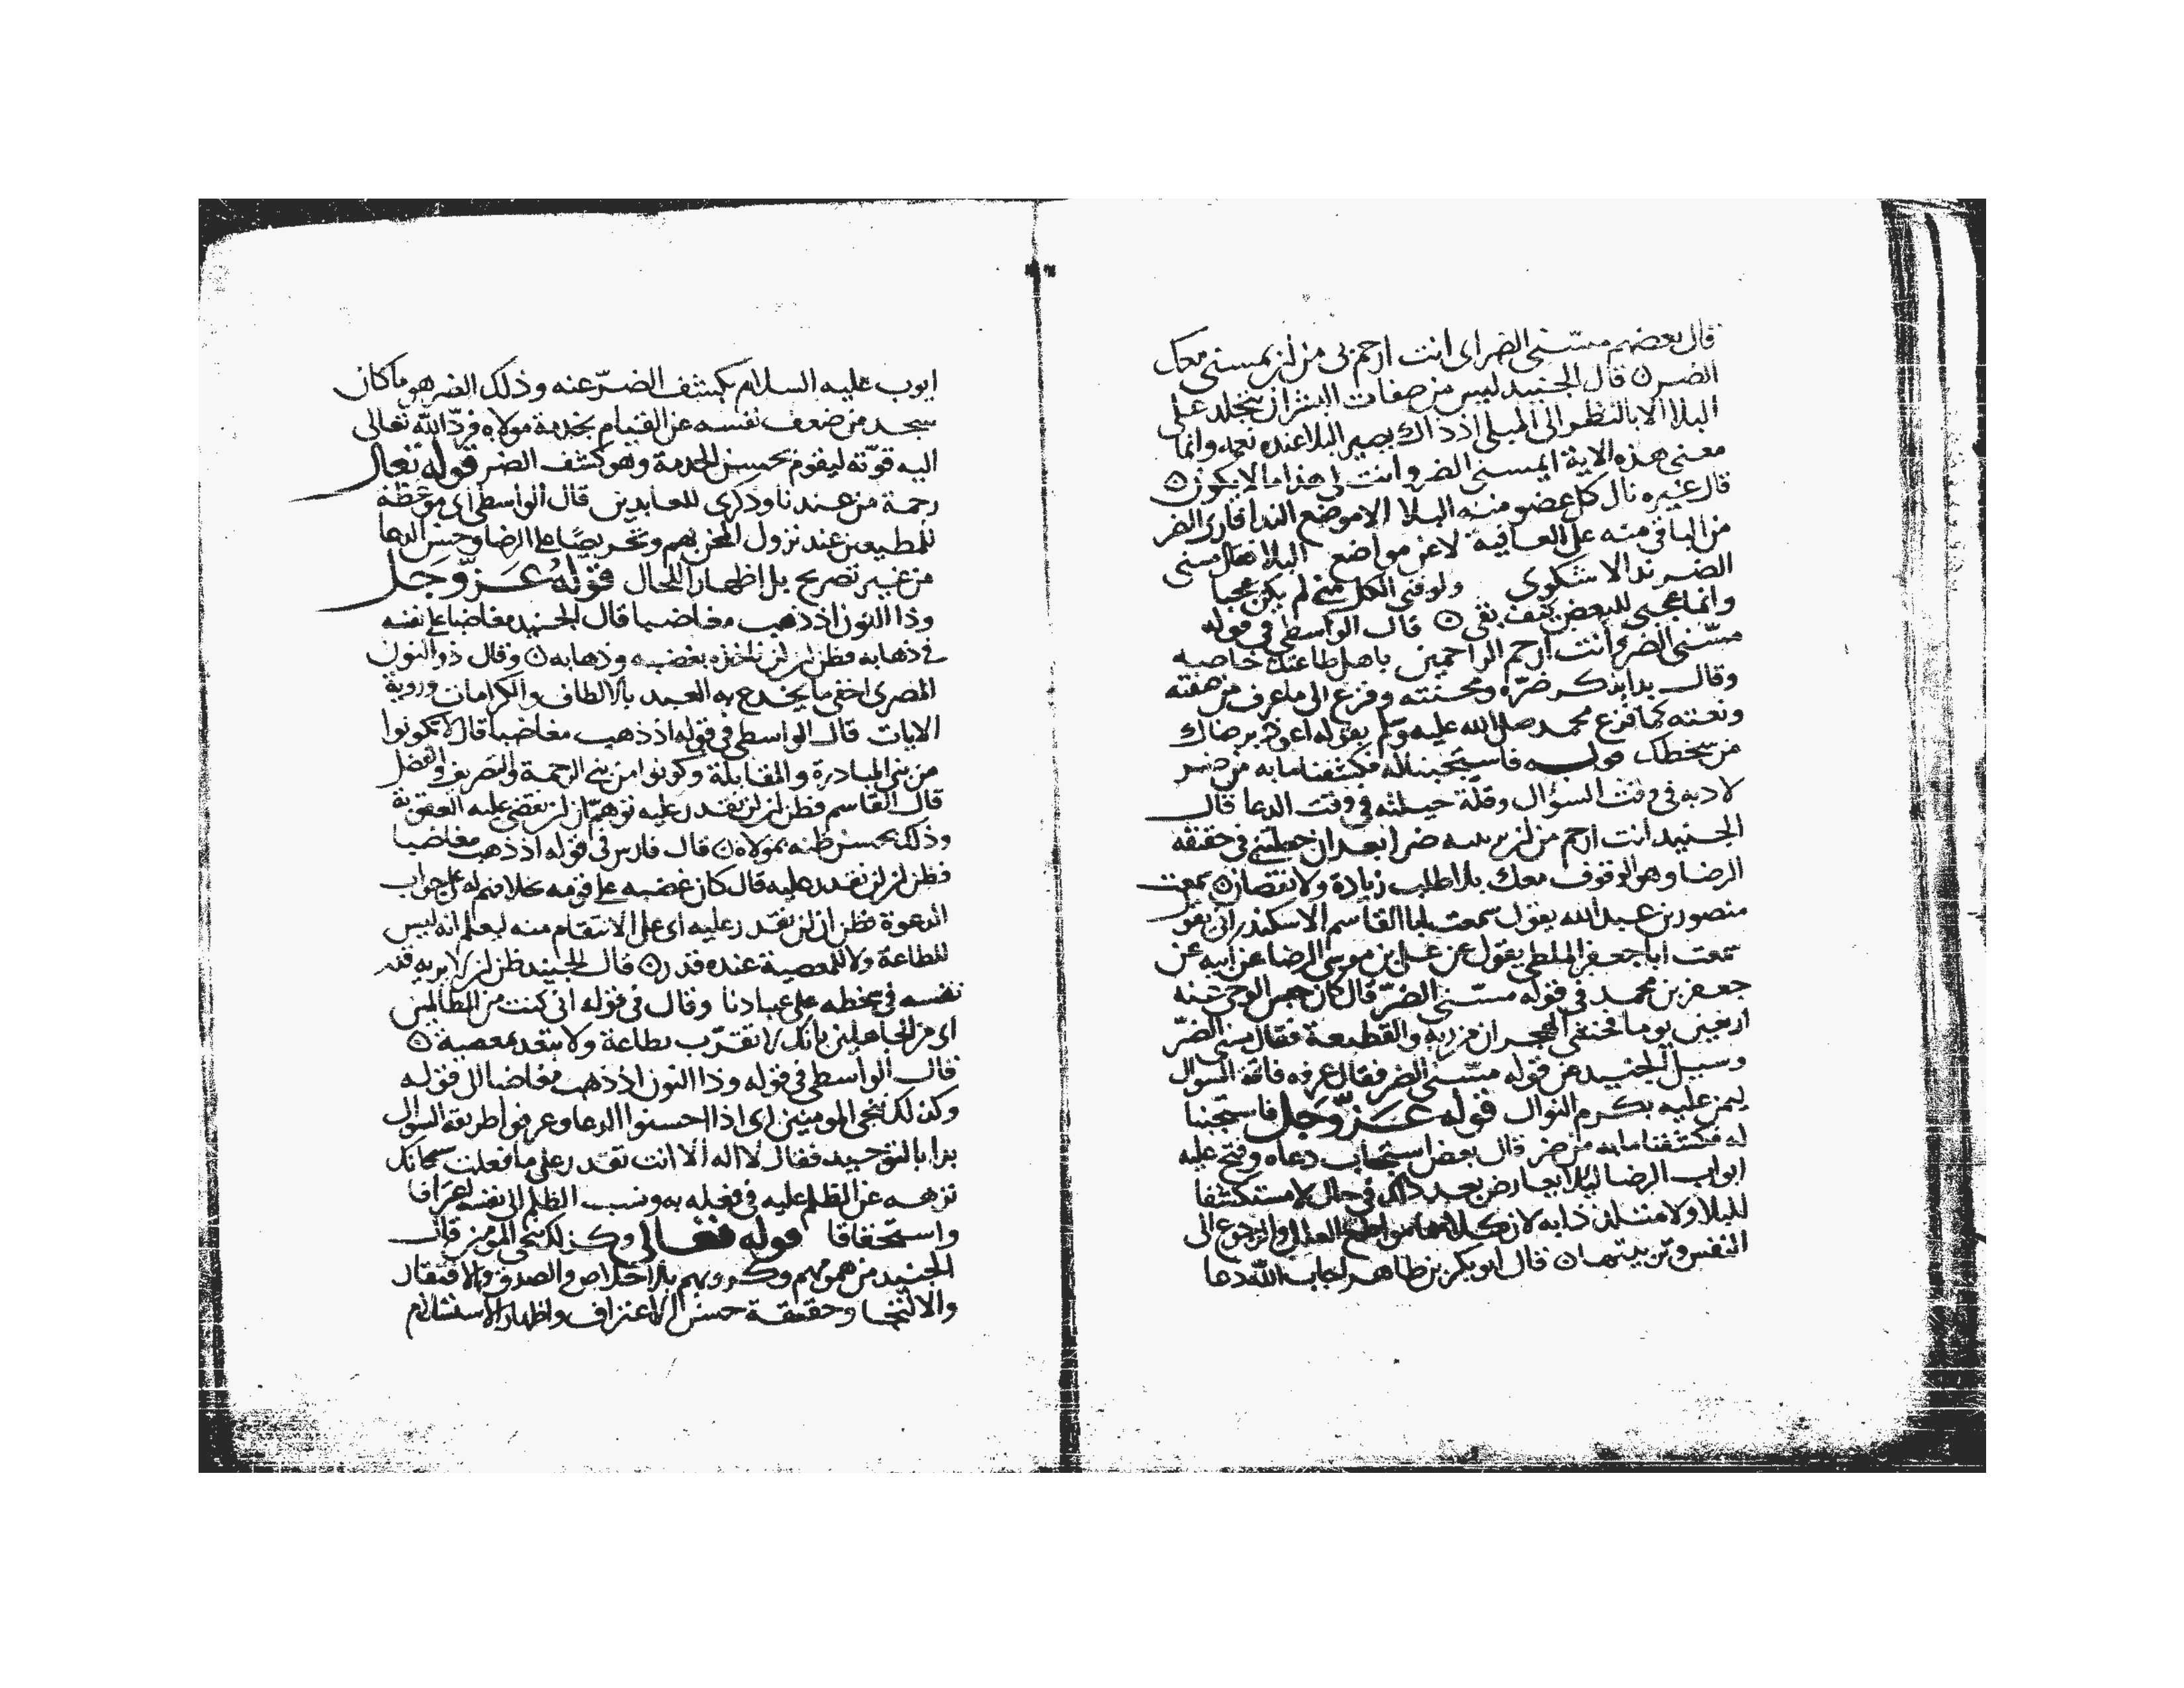 قال بعضهم مسّنى الضر اى انت ارحم بى من ان يمسنى معك
الضر ن قال الجنيد ليس من صفات البشر ان يتجلد على
البلا الا بالنظر الى المبلى اذ ذاك يصير البلا عنده نعمه وانما
معنى هذه الاية ايمسنى الضر وانت لى هذا ما لا يكون ن
قال غيره نال كل عضو منه البلا الا موضع الندا فارى الضر
من الباقى منه على العافية لا عن مواضع البلا فقال مسنى
الضر ندا لا شكوى ولو فنى الكل منى لم يكن عجبا
وانما عجبى للبعض كيف بقى ن قال الواسطى فى قوله
مسّنى الضر وانت ارحم الراحمين باهل طاعتك خاصيه
وقال بدا بذكر ضرّه ومحنته وفزع الى ما عرف من صفته
ونعته كما فزع محمد صلى الله عليه وسلم بقوله اعوذ برضاك
من سخطك قوله فاستجبنا له فكشفنا ما به من ضر
لاد به فى وقت السؤال وقلّة حيلته فى وقت الدعا قال
الجنيد انت ارحم من ان يمسه ضر ابعد ان جعلتنى فى حقيقه
الرضا وهو الوقوف معك بلا طلب زيادة ولا نقصان ن سمعت
منصور بن عبد الله يقول سمعت ابا القاسم الاسكندرانى يقول
سمعت ابا جعفر الملطى يقول عن على بن موسى الرضا عن ابيه عن
جعفر بن محمد فى قوله مسّنى الضرّ قال كان حبس الوحى عنه
اربعين يوما فخشى الهجران من ربه والقطيعة فقال مسنى الضرّ
وسيل الجنيد عن قوله مسّنى الضر فقال عرفه فاقة السوال
ليمن عليه بكرم النوال قوله عَزّوَجَل فاستجبنا
له فكشفنا ما به من ضر قال بعض استجاب دعاه وفتح عليه
ابواب الرضا ليلا يعارض بعد ذلك فى حال لا مستكشفا
للبلا ولا متلذذا به لان كلاهما مواضع العلل والرجوع الى
النفس وتربيتها ن قال ابو بكر بن طاهر اجاب الله دعا
ايوب عليه السلام بكشف الضرّ عنه وذلك الضر هو ما كان
سجد من ضعف نفسه عن القيام بخدمة مولاه فردّ الله تعالى
اليه قوّته ليقوم بحسن الخدمة وهو كشف الضر قوله تعالى
رحمة من عندنا وذكرى للعابدين قال الواسطى اى موعظة
للمطيعين عند نزول المحن بهم وتحريضًا على الرضا وحسن الدعا
من غير تصريح بل اظهار الحال قوله عَزّوَجَل
وذا النون اذ ذهب مغاضبا قال الجنيد مغاضبا على نفسه
فى ذهابه فظن ان لن ناخذه بغضبه وذهابه ن وقال ذو النون
المصرى اخفى ما يخدع به العبد بالالطاف والكرامات وروية
الايات قال الواسطى فى قوله اذ ذهب مغاضبا قال لا تكونوا
من بنى المبادرة والمقابلة وكونوا من بنى الرحمة والتصريف والفضل
قال القاسم فظن ان لن نقدر عليه توهّم ان لن نقضى عليه العقوبة
وذلك بحسن ظنه بمولاه ن قال فارس فى قوله اذ ذهب مغاضبا
فظن ان لن نقدر عليه قال كان غضبه على قومه بخلافهم له على جواب
الدعوة فظن ان لن نقدر عليه اى على الانتقام منه ليعلم انه ليس
للطاعة ولا للمعصية عنده قدر ن قال الجنيد ظن ان لا يريه قدر
نفسه فى سخطه على عبادنا وقال فى قوله انى كنت من الظالمين
اى من الجاهلين بانك لا تقرّب بطاعة ولا تبعد بمعصية ن
قال الواسطى فى قوله وذا النون اذ ذهب مغاضبا الى قوله
وكذلك ننجى المومنين اى اذا احسنوا الدعا وعرفوا طريقة السوال
بدا بالتوحيد فقال لا اله الا انت تقدر على ما فعلت سبحانك
نزهه عن الظلم عليه فى فعله به ونسب الظلم الى نفسه اعترافا
واستحقاقا قوله تعالى وكذلك ننجى المومنين قال
الجنيد من همومهم وكروبهم بالاخلاص والصدق والافتقار
والالتجا وحقيقة حسن الاعتراف واظهار الاستسلام